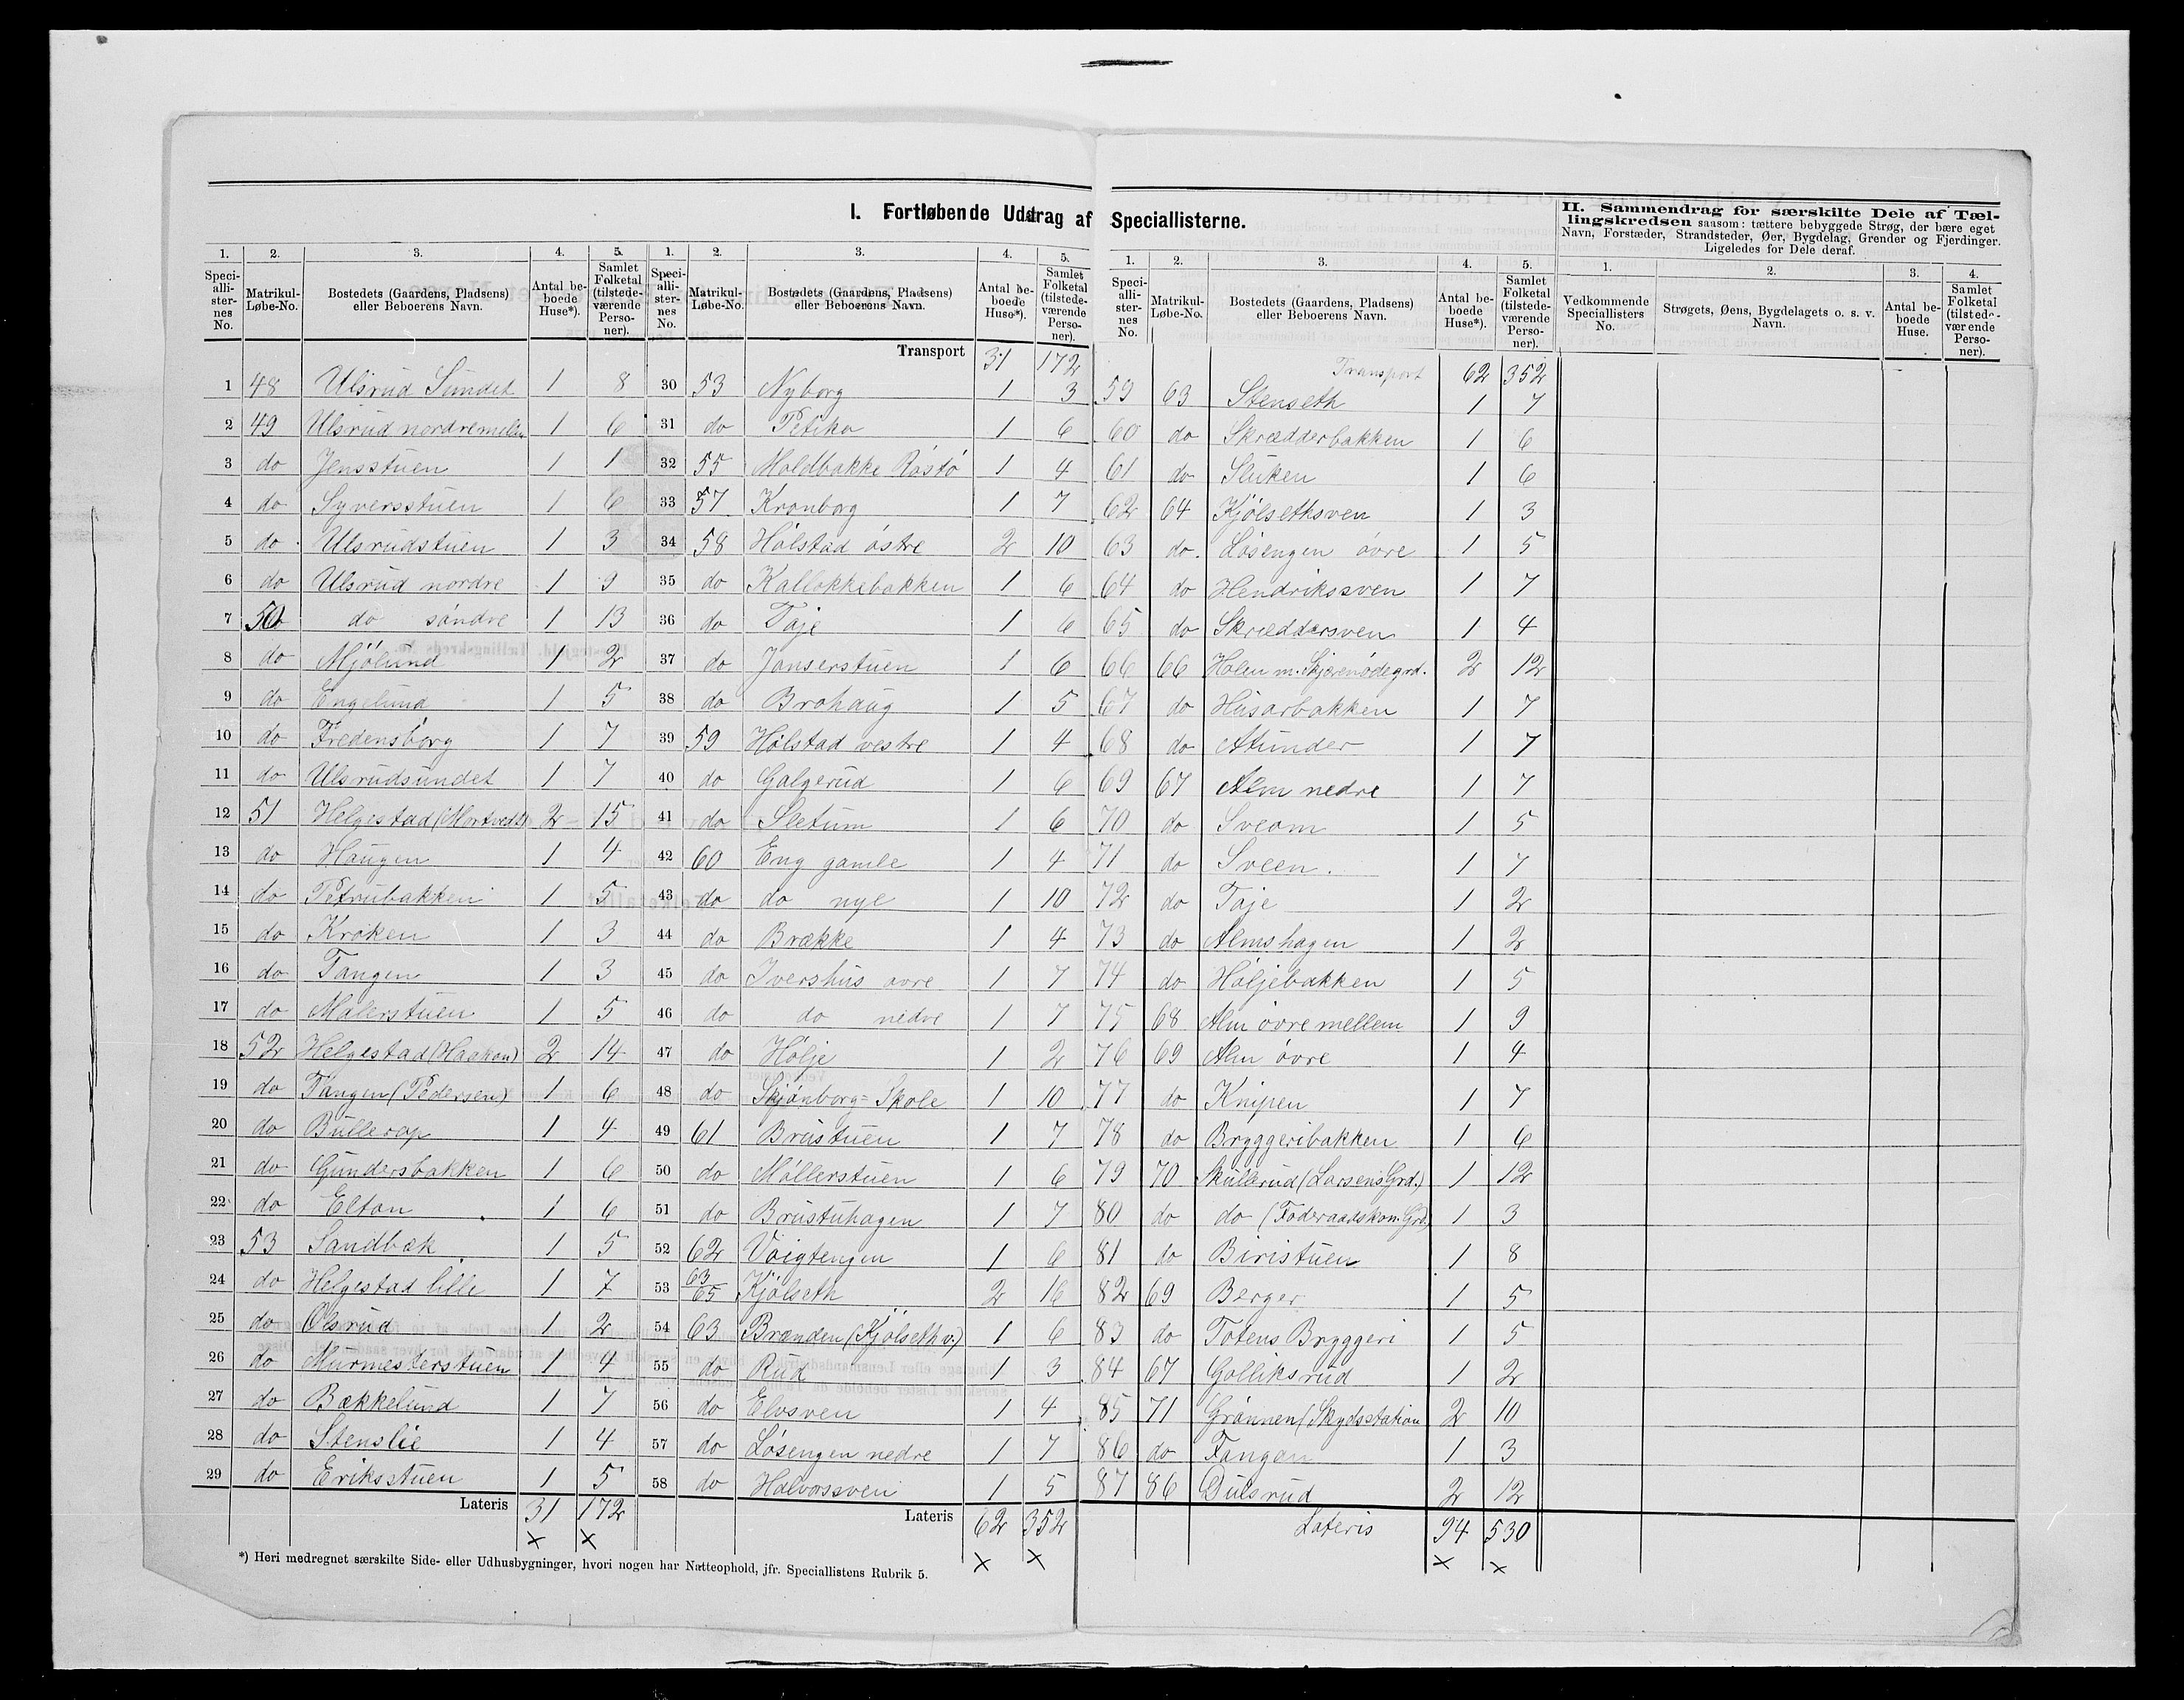 I. Fortløbende Uddrag af Speciallisterne.
II. Sammendrag for særskilte Dele af Tællingskredsen saasom: tættere bebyggede Strøg, der bære eget
Navn, Forstæder, Strandsteder, Øer, Bygdelag, Grender og Fjerdinger.
Ligeledes for Dele deraf.
1. 2. 3. 4. 5. 1. 2. 3. 4. 5. 1. 2. 3. 4. 5. 1. 2. 3. 4.
Speciallisternes No. Matrikul-Løbe-No. Bostedets (Gaardens, Pladsens) eller Beboerens Navn. Antal beboede Huse*). Samlet Folketal (tilstedeværende Personer).
Speciallisternes No. Matrikul-Løbe-No. Bostedets (Gaardens, Pladsens) eller Beboerens Navn. Antal beboede Huse*). Samlet Folketal (tilstedeværende Personer).
Speciallisternes No. Matrikul-Løbe-No. Bostedets (Gaardens, Pladsens) eller Beboerens Navn. Antal beboede Huse*). Samlet Folketal (tilstedeværende Personer).
Vedkommende Speciallisters No. Strøgets, Øens, Bygdelagets o. s. v. Navn. Antal beboede Huse. Samlet Folketal (tilstedeværende Personer).
1 48 Ulsrud Sundet 1 8
2 49 Ulsrud nordre mellem 1 6
3 do Jensstuen 1 1
4 do Syversstuen 1 6
5 do Ulsrudstuen 1 3
6 do Ulsrud nordre 1 9
7 50 do søndre 1 13
8 do Mjølund 1 2
9 do Engelund 1 5
10 do Fredensborg 1 7
11 do Ulsrudsundet 1 7
12 51 Helgestad 2 15
13 do Haugen 1 4
14 do Petrubakken 1 5
15 do Kroken 1 3
16 do Tangen 1 3
17 do Malerstuen 1 5
18 52 Helgestad (Haakon) 2 14
19 do Tangen (Pedersen) 1 6
20 do Bullerop 1 4
21 do Gundersbakken 1 6
22 do Elton 1 6
23 53 Sandbæk 1 5
24 do Helgestad lille 1 7
25 do Olsrud 1 2
26 do Murmesterstuen 1 4
27 do Bækkelund 1 7
28 do Stenslie 1 4
29 do Eriksstuen 1 5
Lateris 31 172
x x
Transport 31 172
30 53 Nyborg 1 3
31 do Petika 1 6
32 55 Moldbakke Røstø 1 4
33 57 Kronborg 1 7
34 58 Hølstad østre 2 10
35 do Kalløkkebakken 1 6
36 do Taje 1 6
37 do Janserstuen 1 6
38 do Brohaug 1 5
39 59 Hølstad vestre 1 4
40 do Galgerud 1 6
41 do Sletum 1 6
42 60 Eng gamle 1 4
43 do do nye 1 10
44 do Brække 1 4
45 do Ivershus øvre 1 7
46 do do nedre 1 7
47 do Hølje 1 2
48 do Skjønborg=Skole 1 10
49 61 Brustuen 1 7
50 do Møllerstuen 1 6
51 do Brustuhagen 1 7
52 62 Voigtengen 1 6
53 63/65 Kjølseth 2 16
54 63 Brænden (Kjølseth v.) 1 6
55 do Rud 1 3
56 do Elvsven 1 4
57 do Løsengen nedre 1 7
58 do Halvorssven 1 5
Lateris 62 352
x x
Transport 62 352
59 63 Stenseth 1 7
60 do Skrædderbakken 1 6
61 do Sluken 1 6
62 64 Kjølsethsven 1 3
63 do. Løsengen øvre 1 5
64 do Hendrikssven 1 7
65 do Skræddersven 1 4
66 66 Holen m. Skjærenødegrd. 2 12
67 do Husarbakken 1 7
68 do Atunder 1 7
69 67 Alm nedre 1 7
70 do Sveom 1 5
71 do Sveen. 1 7
72 do Taje 1 2
73 do Almshagen 1 2
74 do Høljebakken 1 5
75 68 Alm øvre mellem 1 9
76 69 Alm øvre 1 4
77 do Knipen 1 7
78 do Brygggeribakken 1 6
79 70 Skullerud (Larsens Grd.) 1 12
80 do do (Føderaadskon. Grd.) 1 3
81 do Biristuen 1 8
82 69 Berger 1 5
83 do Totens Brygggeri 1 5
84 67 Golliksrud 1 2
85 71 Grønnen (Skydsstation 2 10
86 do Tangen 1 3
87 86 Dulsrud 2 12
Lateris 94 530
x x
*) Heri medregnet særskilte Side- eller Udhusbygninger, hvori nogen har Natteophold, jfr. Speciallistens Rubrik 5.